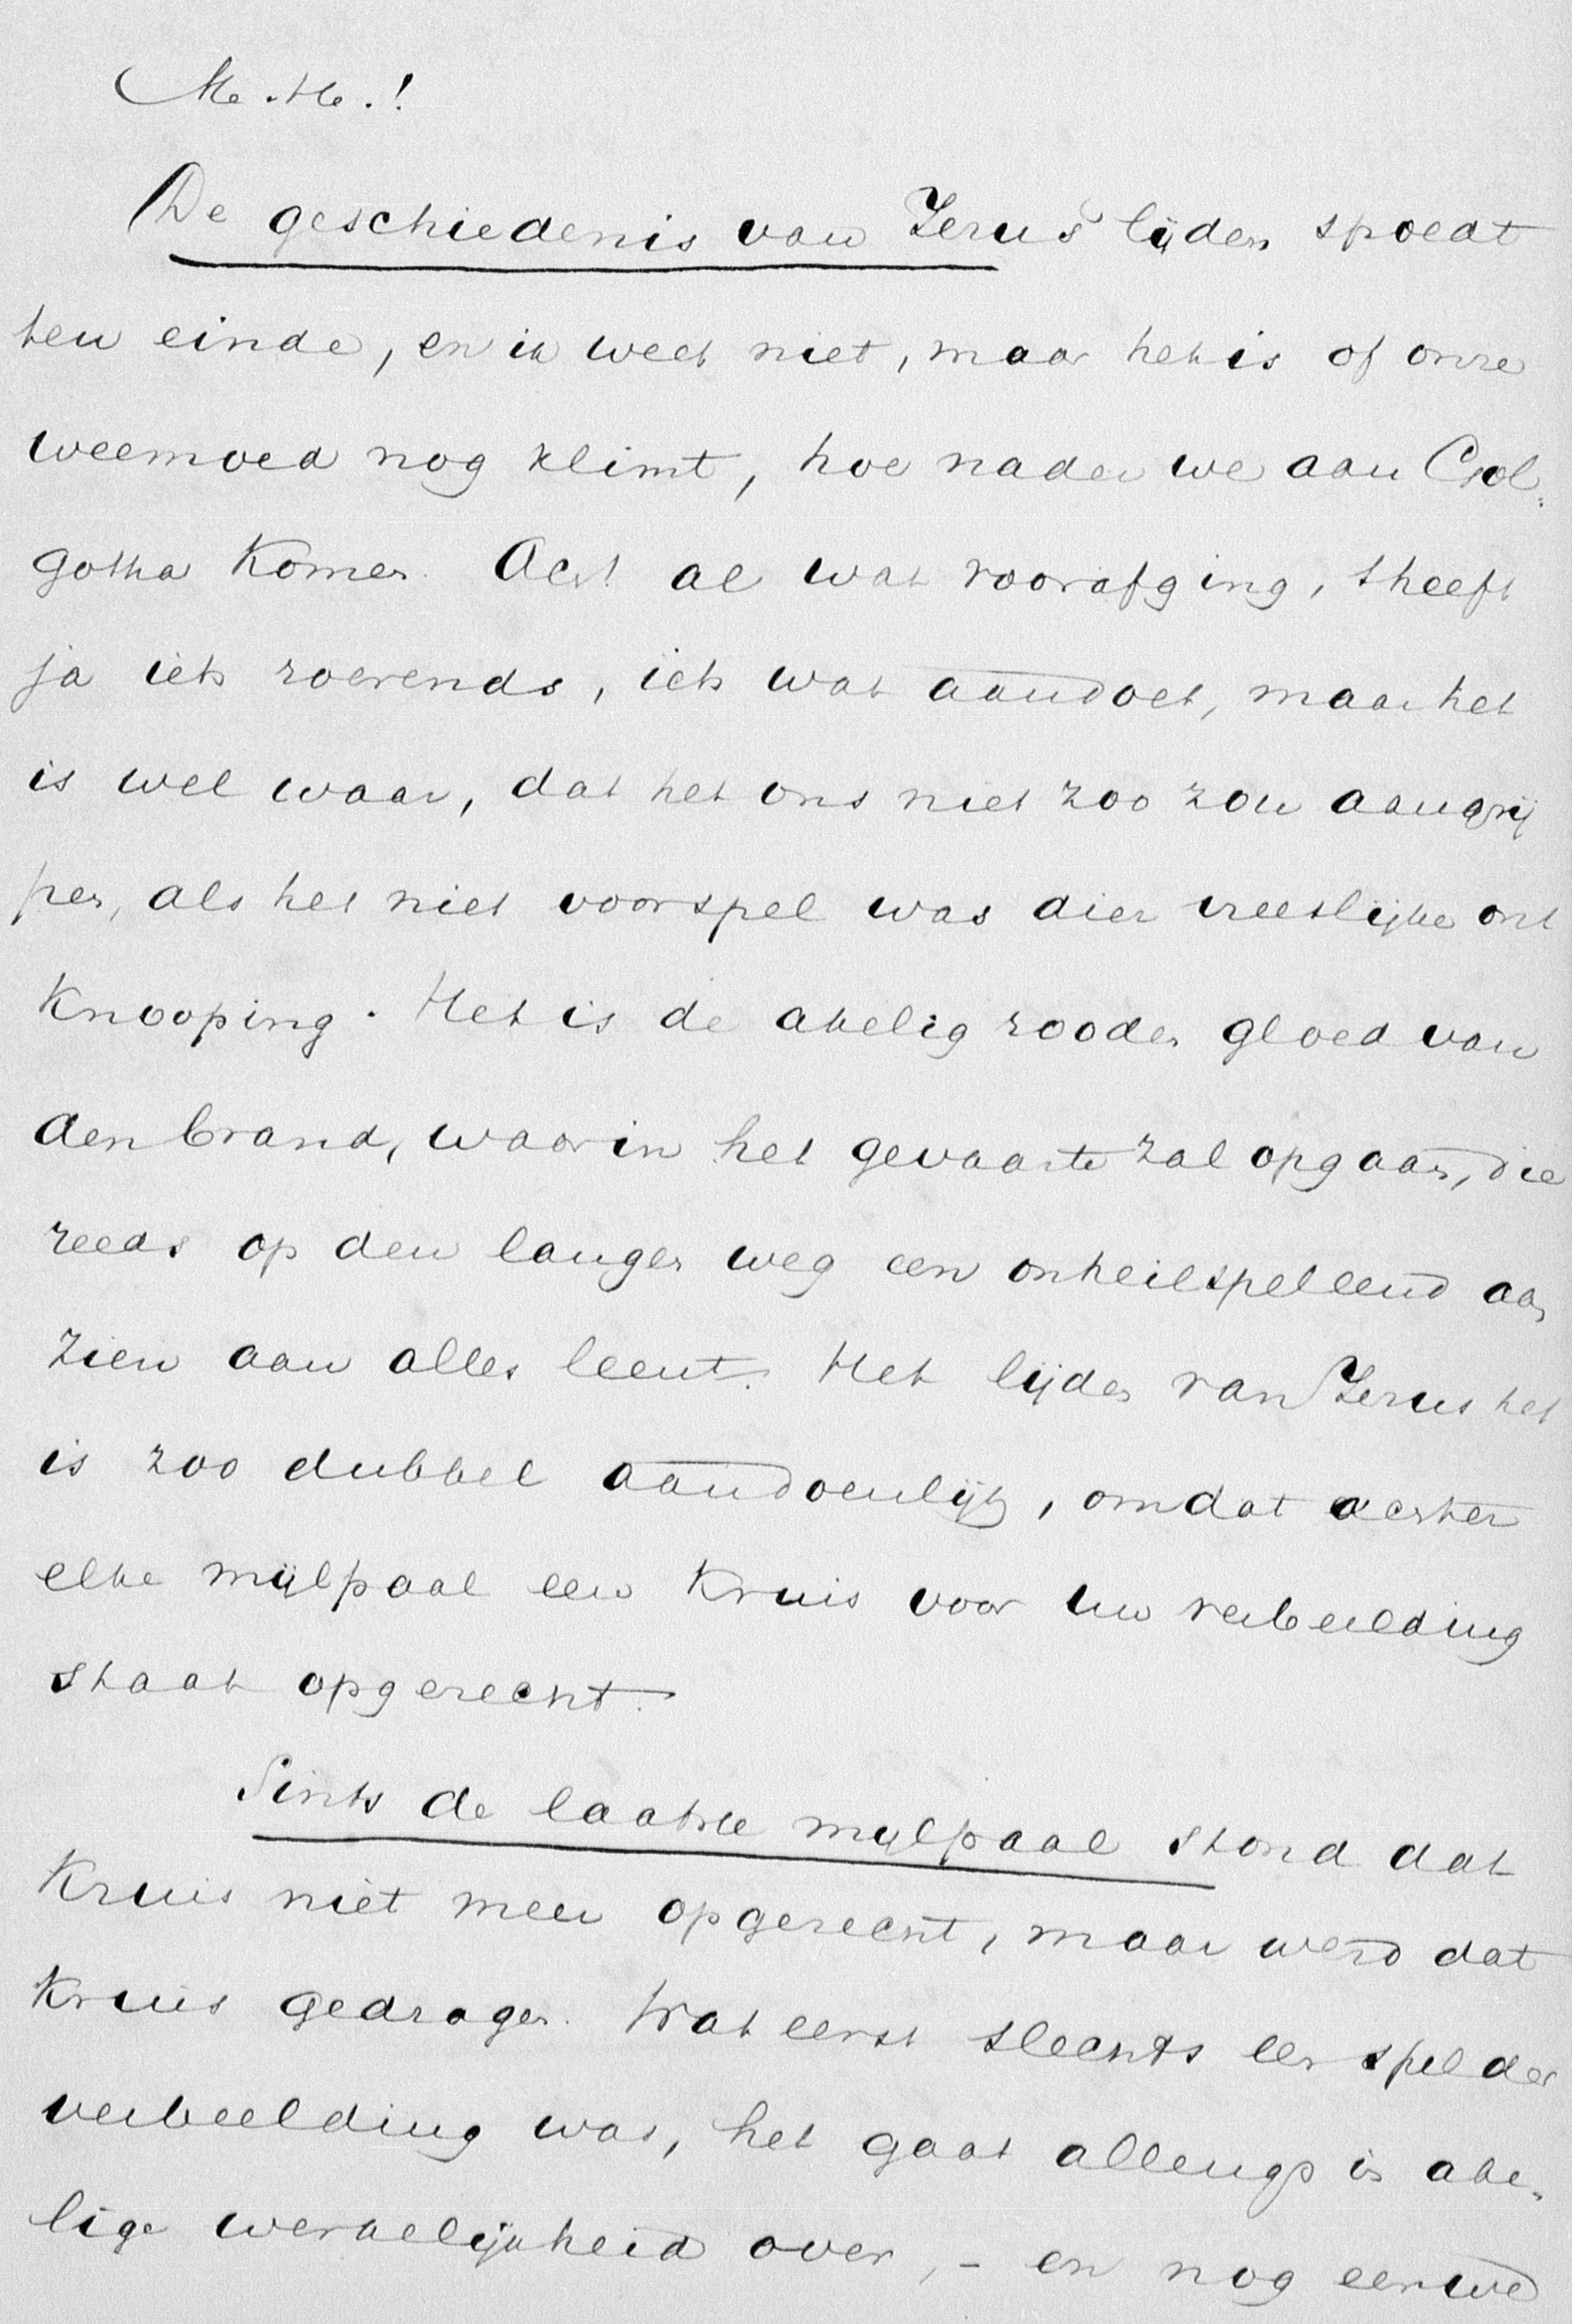 M. H.!
De geschiedenis van Jezus' lijden spoedt
ten einde, en ik weet niet, maar het is of onze
weemoed nog klimt, hoe nader we aan Gol-
gotha komen. Och al wat voorafging, 't heeft
ja iets roerends, iets wat aandoet, maar het
is wel waar, dat het ons niet zoo zou aangrij
pen, als het niet voorspel was dier vreeslijke ont
knooping. Het is de akelig rooden gloed van
den brand, waarin het gevaarte zal opgaan, die
reeds op den langen weg een onheilspellend aan
zien aan alles leent. Het lijden van Jezus het
is zoo dubbel aandoenlijk, omdat achter
elke mijlpaal een kruis voor uw verbeelding
staat opgerecht.
Sints de laatste mijlpaal stond dat
kruis niet meer opgerecht, maar werd dat
kruis gedragen. Wat eerst slechts een spel der
verbeelding was, het gaat allengs in ake-
lige werkelijkheid over, - en nog eer we